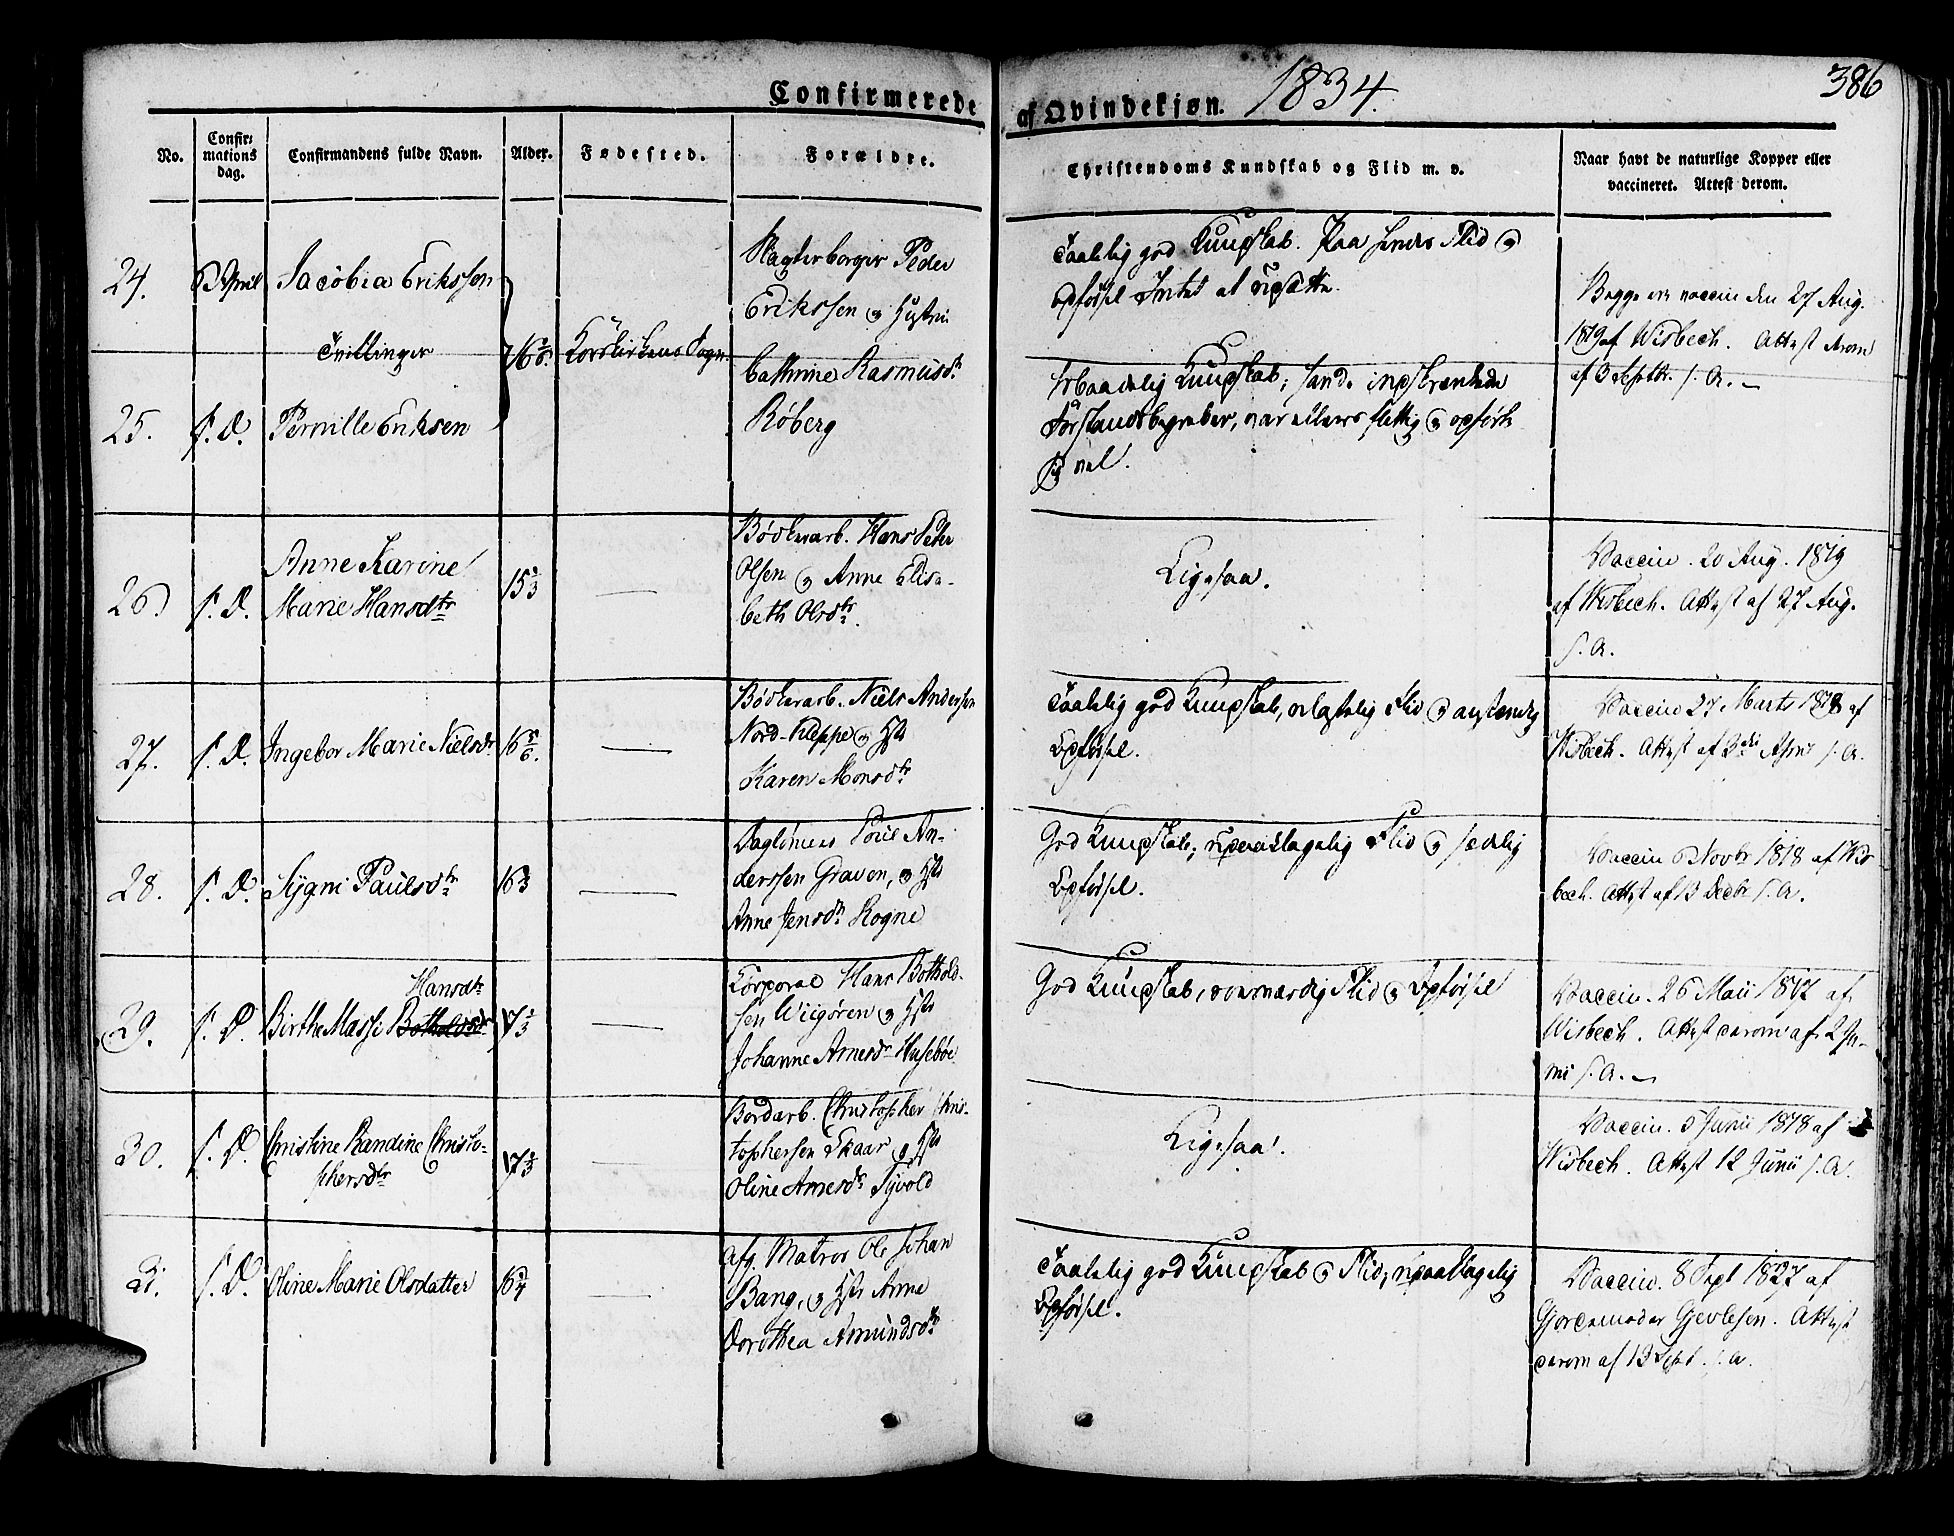 Confirmerede af Qvindekjøn. 1834. 386
No.
Confir-
mations
dag.
Confirmandens fulde Navn.
Alder.
Fødested.
Forældre.
Christendoms Kundskab og Flid m. v.
Naar havt de naturlige Kopper eller
vaccineret. Attest derom.
24. 6 April Jacobia Erikssen
Tvillinger
Korskirkens Sogn
Peder
Erikssen og Hustru
Cathrine Rasmusdr
Røberg
Taalelig god Kundskab. Paa hendes Flid og
Opførsel Intet at udsætte.
Begge ere vaccin den 27 Aug.
1819 af Wisbech. Attest derom
af 3 Septbr. s. A.
25. s. D. Pernille Eriksen
Kundskab; indskrænkede
Forstandsbegreber, var ellers flittig og opførte
sig vel.
26. s. D. Anne Karine
Marie Hansdtr
15 1/3
Bødkerarb. Hans Peter
Olsen og Anne Elisa-
beth Olsdtr.
Ligesaa.
Vaccin. 20 Aug. 1819
af Wisbech. Attest af 27 Aug.
s. A.
27. s. D. Ingebor Marie Nielsdtr 16 5/6.
Bødkerarb. Niels Anderssen
Nord-Kleppe og Hst
Karen Monsdtr
Taalelig god Kundskab, Flid og anstændig
Opførsel.
Vaccin 27 Marts 1818 af
Wisbech. Attest af 3die s. A.
28. s. D. Sygni Paulsdtr 16 1/3
Dagleier Poul An-
derssen Graven, og Hst
Anne Jensdr Rogne
God Kundskab; upaaklagelig Flid og sædelig
Opførsel.
Vaccin 6 Novbr 1818 af Wis-
bech. Attest af 13 Decbr s. A.
29. s. D. Birthe Massi Botholdsdtr Hansdtr 17 1/3
Corporal Hans Bothold-
sen Wiigøren og Hst
Johanne Arnesdr Husebøe
God Kundskab, roesværdig Flid og Opførsel
Vaccin. 26 Maii 1817 af
Wisbech. Attest derom af 2 Ju-
ni s. A.
30. s. D. Christine Randine Christo-
phersdtr
17 1/3
Bordarb. Christopher Chris-
tophersen Skaar og Hst
Oline Arnesdr Tyvold
Ligesaa.
Vaccin. 5 Junii 1818 af
Wisbech. Attest 12 Junii s. A.
31. s. D. Oline Marie Olsdatter 16 3/4
afg. Matros Ole Johan
Bang, og Hst Anne
Dorothea Amundsdtr
Taalelig god Kundskab og Flid; upaaklagelig
Opførsel.
Vaccin. 8 Sept 1827 af
Gjordemoder Gjevlesen. Attest
derom af 13 Sept. s. A.